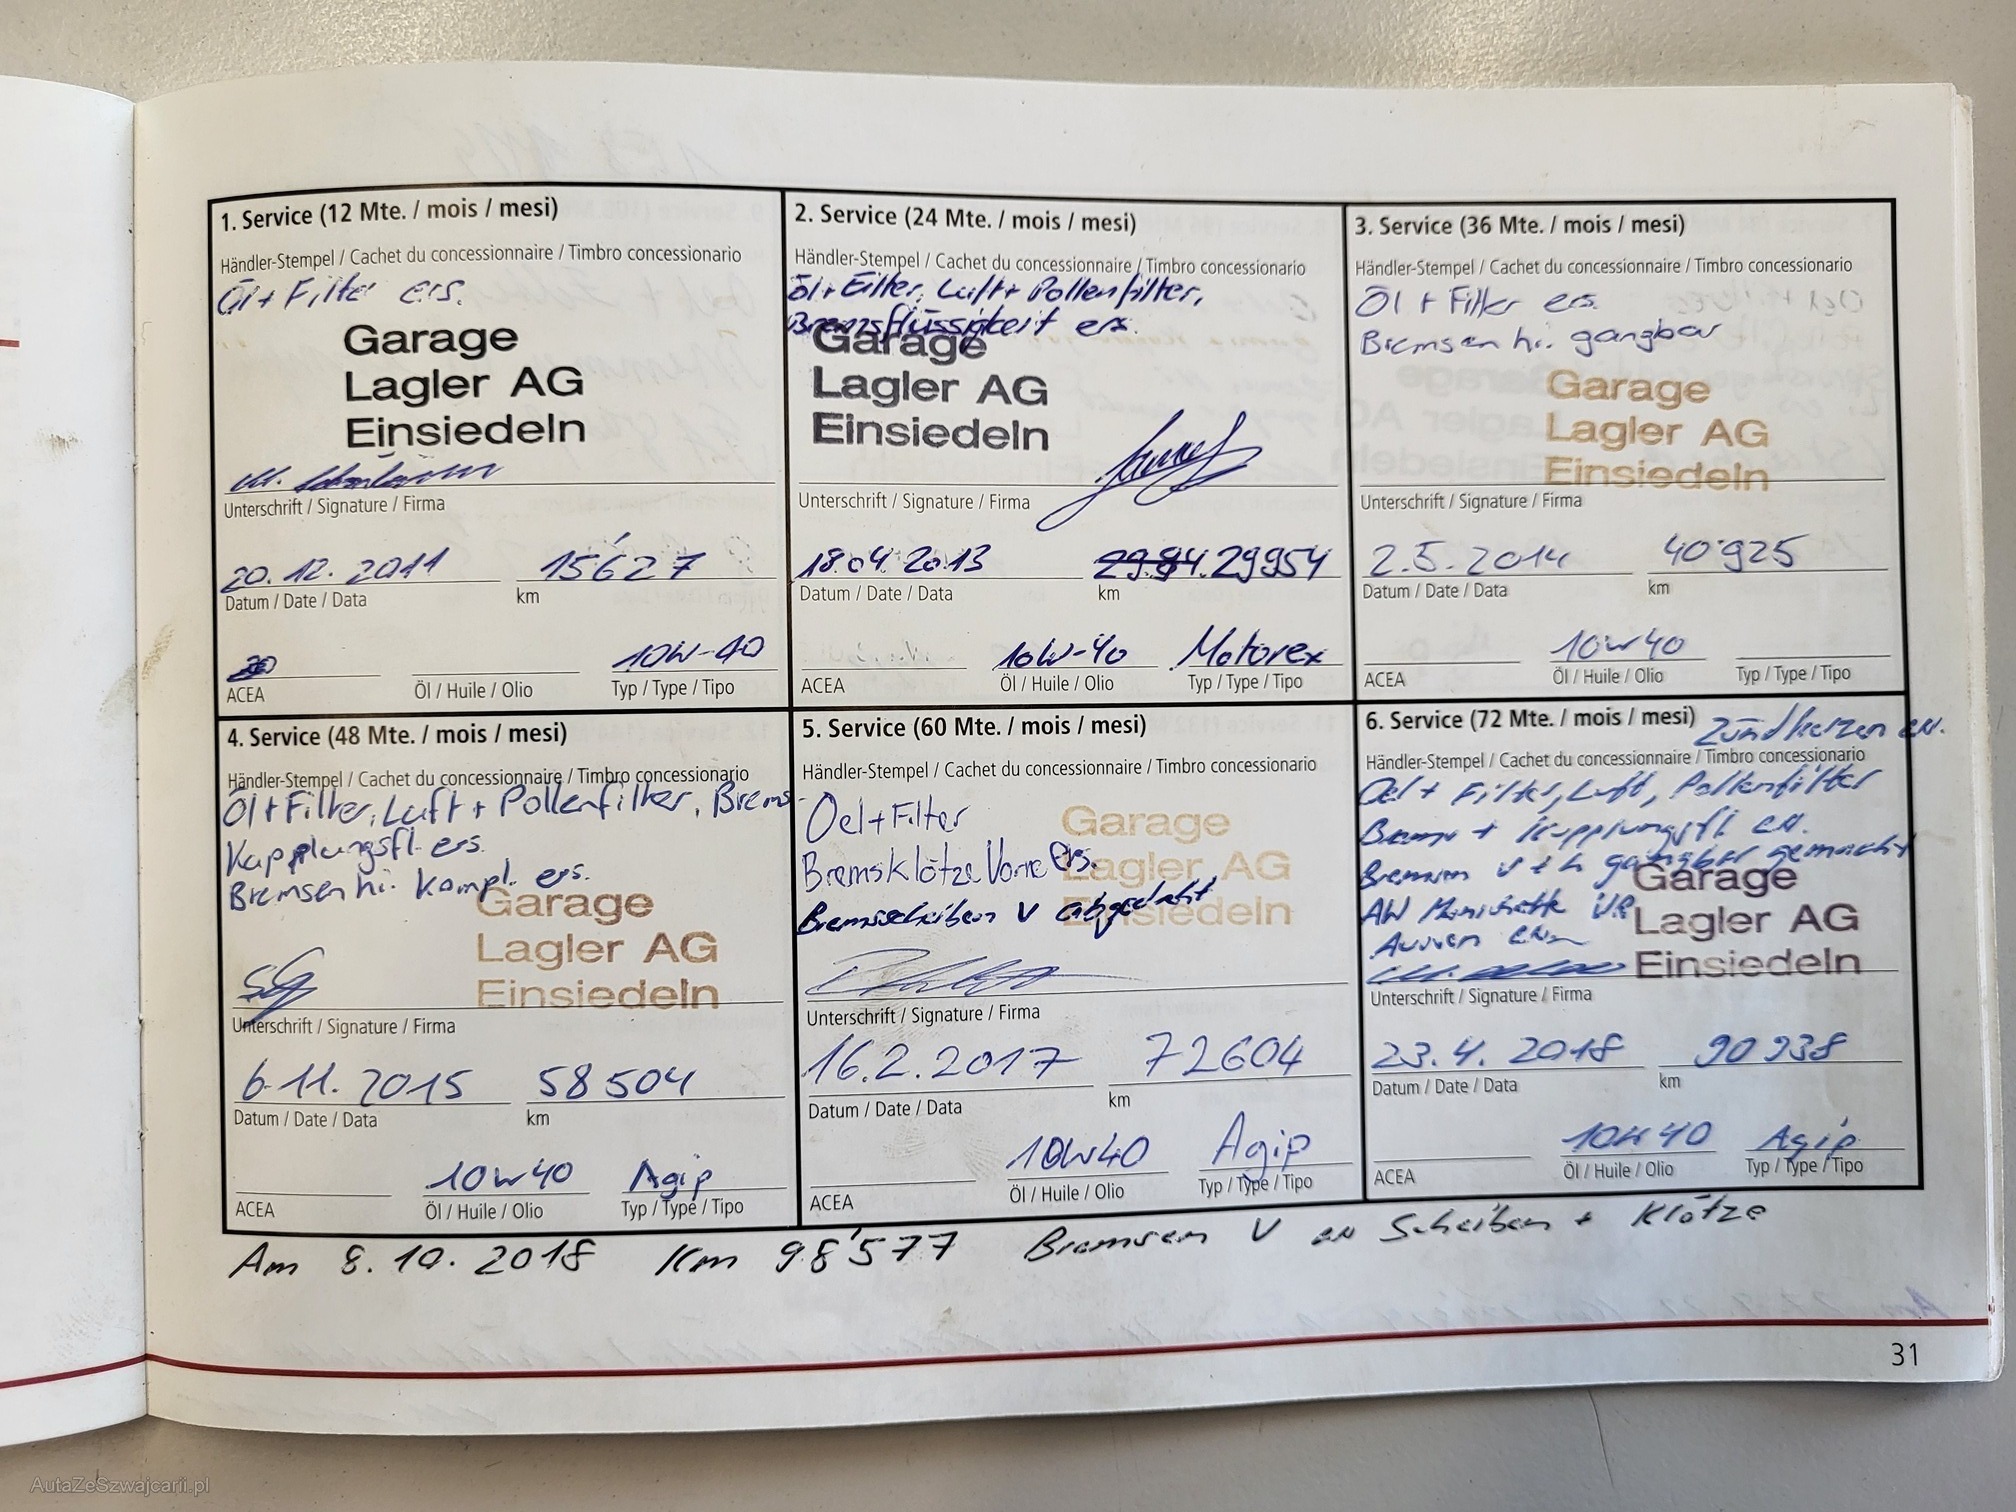 1. Service (12 Mte. / mois / mesi)
Händler-Stempel / Cachet du concessionnaire / Timbro concessionario
Öl + Filter ers.
Garage
Lagler AG
Einsiedeln
Unterschrift / Signature / Firma
20.12.2011 15'627
Datum / Date / Data km
10W-40
ACEA Öl / Huile / Olio Typ / Type / Tipo
2. Service (24 Mte. / mois / mesi)
Händler-Stempel / Cachet du concessionnaire / Timbro concessionario
Öl + Filter, Luft + Pollenfilter,
Bremsflüssigkeit ers.
Garage
Lagler AG
Einsiedeln
Unterschrift / Signature / Firma
18.04.2013 29954
Datum / Date / Data km
10W-40 Motorex
ACEA Öl / Huile / Olio Typ / Type / Tipo
3. Service (36 Mte. / mois / mesi)
Händler-Stempel / Cachet du concessionnaire / Timbro concessionario
Öl + Filter ers.
Bremsen hi. gangbar
Garage
Lagler AG
Einsiedeln
Unterschrift / Signature / Firma
2.5.2014 40'925
Datum / Date / Data km
10W40
ACEA Öl / Huile / Olio Typ / Type / Tipo
4. Service (48 Mte. / mois / mesi)
Händler-Stempel / Cachet du concessionnaire / Timbro concessionario
Öl + Filter, Luft + Pollenfilter, Brems-
Kupplungsfl. ers.
Bremsen hi. kompl. ers.
Garage
Lagler AG
Einsiedeln
Unterschrift / Signature / Firma
6.11.2015 58504
Datum / Date / Data km
10W40 Agip
ACEA Öl / Huile / Olio Typ / Type / Tipo
5. Service (60 Mte. / mois / mesi)
Händler-Stempel / Cachet du concessionnaire / Timbro concessionario
Oel + Filter
Bremsklötze Vorne ers.
Bremsscheiben V abgedreht
Garage
Lagler AG
Einsiedeln
Unterschrift / Signature / Firma
16.2.2017 72604
Datum / Date / Data km
10W40 Agip
ACEA Öl / Huile / Olio Typ / Type / Tipo
6. Service (72 Mte. / mois / mesi) Zündkerzen ers.
Händler-Stempel / Cachet du concessionnaire / Timbro concessionario
Oel + Filter, Luft, Pollenfilter
Brems + Kupplungsfl. ers.
Bremsen v + h gangbar gemacht
AW Manschette
Aussen
Garage
Lagler AG
Einsiedeln
Unterschrift / Signature / Firma
23.4.2018 90938
Datum / Date / Data km
10W40 Agip
ACEA Öl / Huile / Olio Typ / Type / Tipo
Am 8.10.2018 Km 98'577 Bremsen V ers Scheiben + Klötze
31
AutaZeSzwajcarii.pl